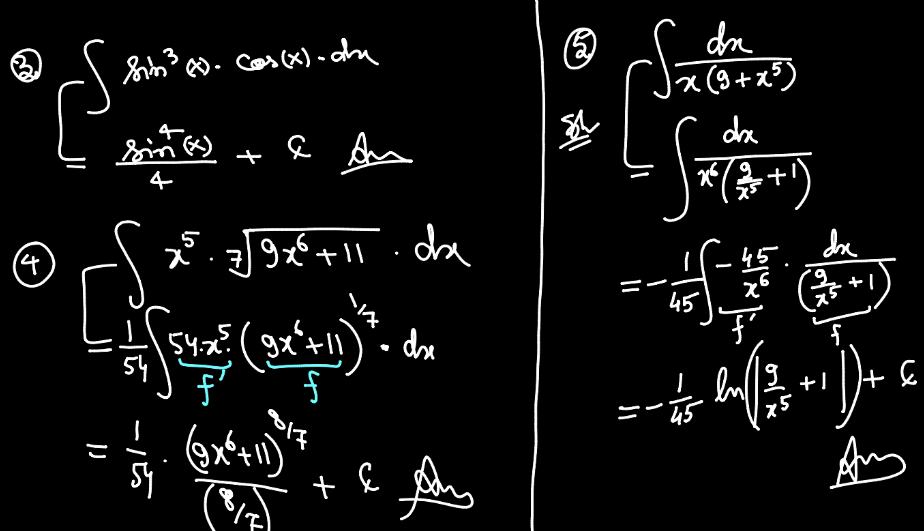 ③ ∫ sin³(x) · cos(x) · dx
= sin⁴(x)/4 + C Ans
④ ∫ x⁵ · ⁷√(9x⁶+11) · dx
= 1/54 ∫ 54·x⁵ · (9x⁶+11)^(1/7) · dx
f' f
= 1/54 · (9x⁶+11)^(8/7)/(8/7) + C Ans
⑤ ∫ dx/(x(9+x⁵))
Sol
= ∫ dx/(x⁶(9/x⁵+1))
= -1/45 ∫ -45/x⁶ · dx/(9/x⁵+1)
f' f
= -1/45 ln(|9/x⁵+1|) + C
Ans